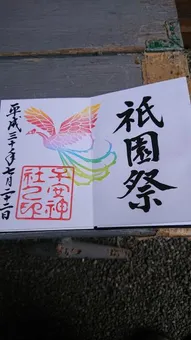 祇園祭
平成三十年七月二十二日
子安神
社之印